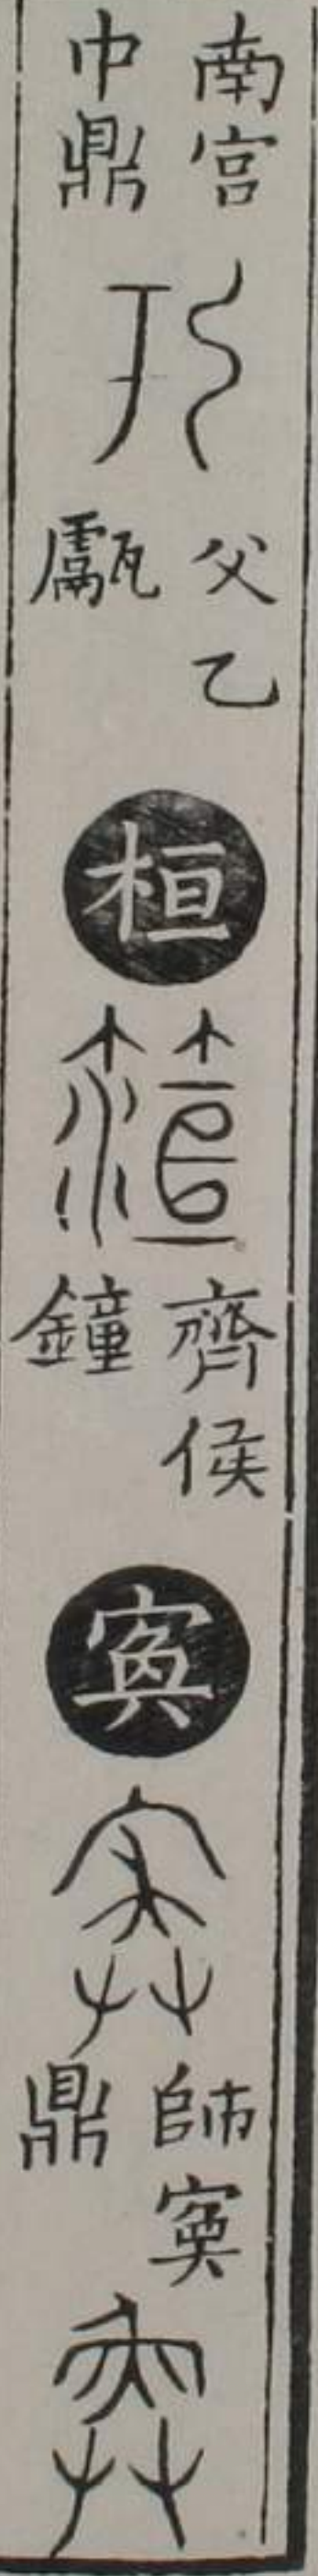 南宫
中鼎
父乙
甗
桓
齊侯
鐘
寏
師寏
鼎